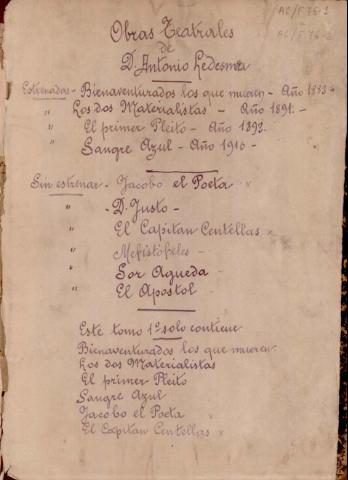 AL/F.76-1
AL/F.76-2
Obras Teatrales
de
D. Antonio Ledesma
Estrenadas - Bienaventurados los que mueren - Año
" Los dos Materialistas - Año 1891. -
" El primer Pleito - Año 1892.
" Sangre Azul - Año 1910 -
Sin estrenar - Jacobo el Poeta x
" - D. Justo -
" El Capitan Centellas x
" Mefistófeles -
" Sor Agueda -
" El Apostol -
Este tomo 1º solo contiene
Bienaventurados los que mueren
Los dos Materialistas
El primer Pleito
Sangre Azul
Jacobo el Poeta x
El Capitan Centellas x